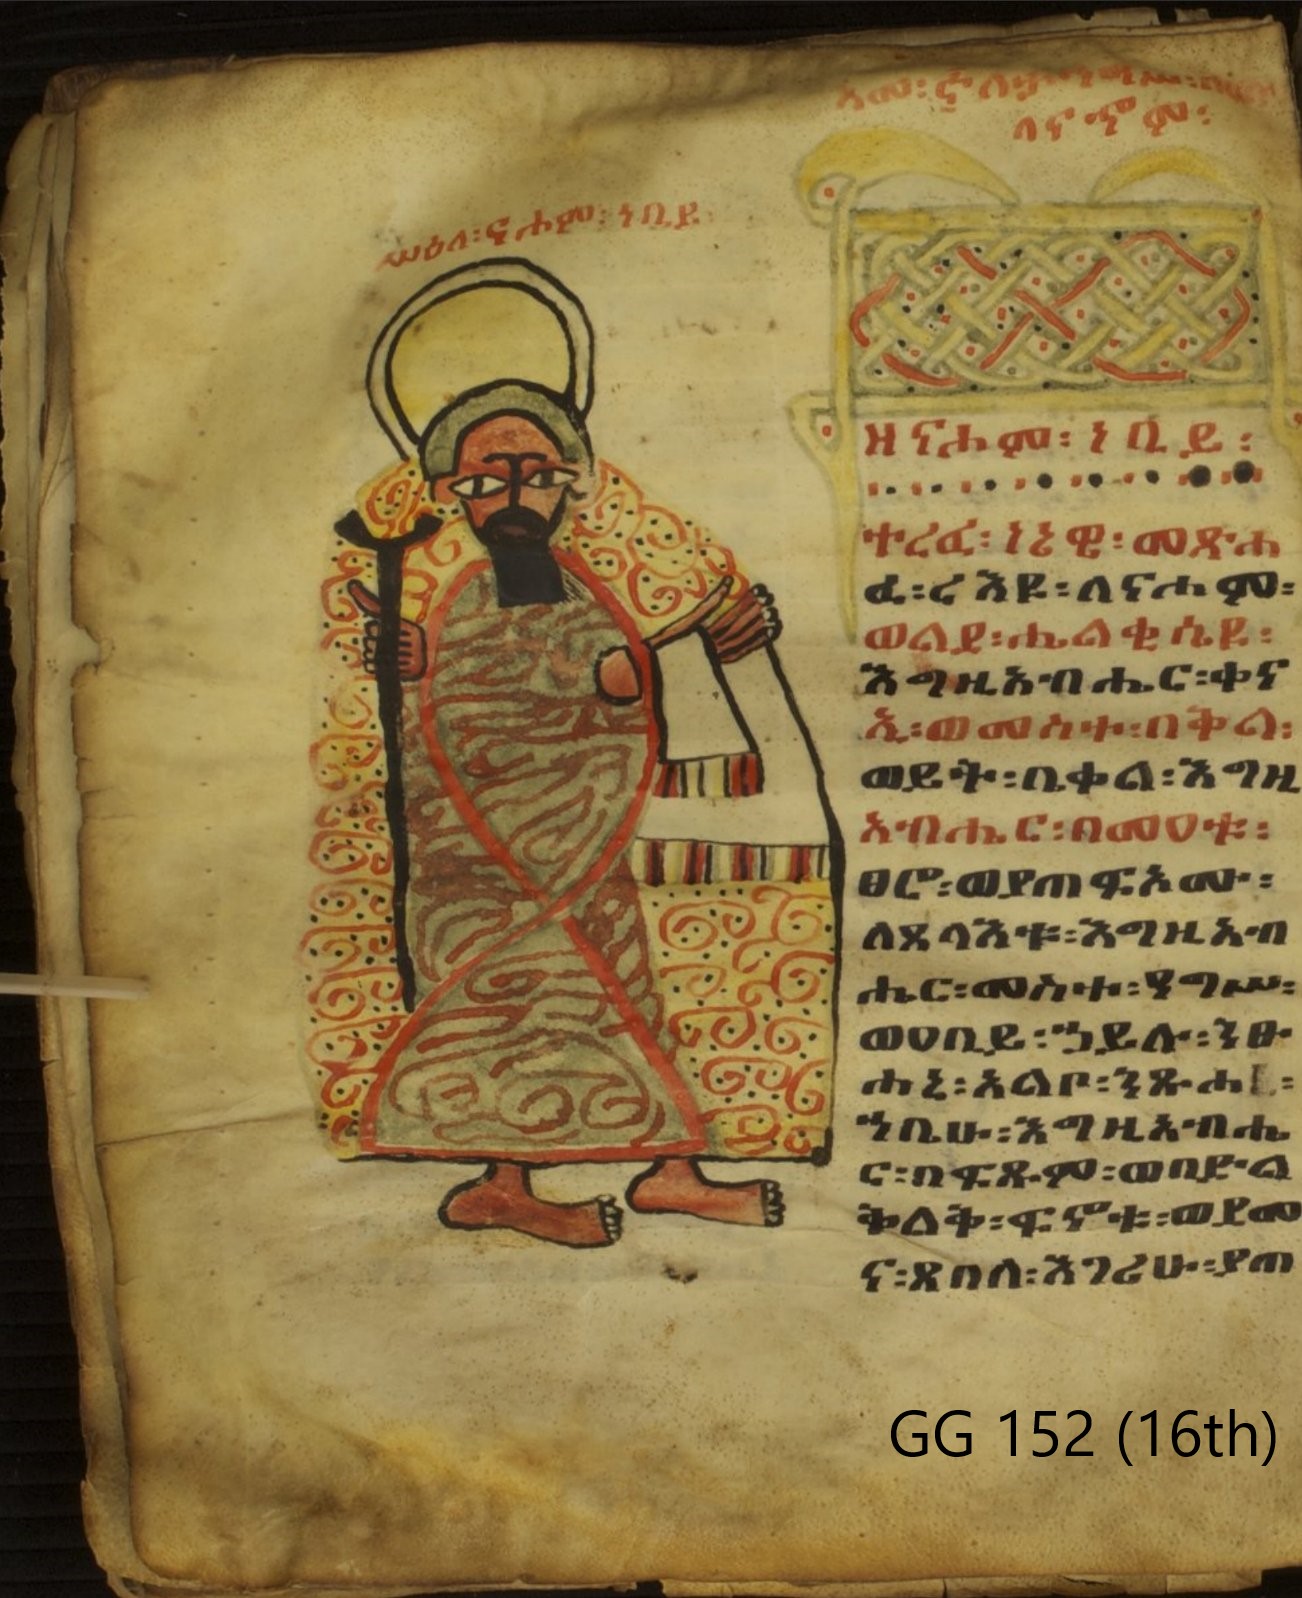 ሥዕለ፡ናሖም፡ነቢይ፡
ዘናሖም፡ነቢይ፡
ተረፈ፡ነኔዊ፡መጽሐ
ፈ፡ረእዩ፡ለናሖም፡
ወልደ፡ሔልቂሴዩ፡
እግዚአብሔር፡ቀና
ኢ፡ወመስተ፡በቅል፡
ወይት፡ቤቀል፡እግዚ
አብሔር፡በመዐቱ፡
ፀሮ፡ወያጠፍኦሙ፡
ለጸላእቱ፡እግዚአብ
ሔር፡መስተ፡ዓግሥ፡
ወዐቢይ፡ኀይሉ፡
ሐኒ፡አልቦ፡
ኀቤሁ፡እግዚአብሔ
ር፡በፍጹም፡ወበድል
ቅልቅ፡ፍኖቱ፡ወደመ
ና፡ጸበለ፡እገሪሁ፡ያጠ
GG 152 (16th)